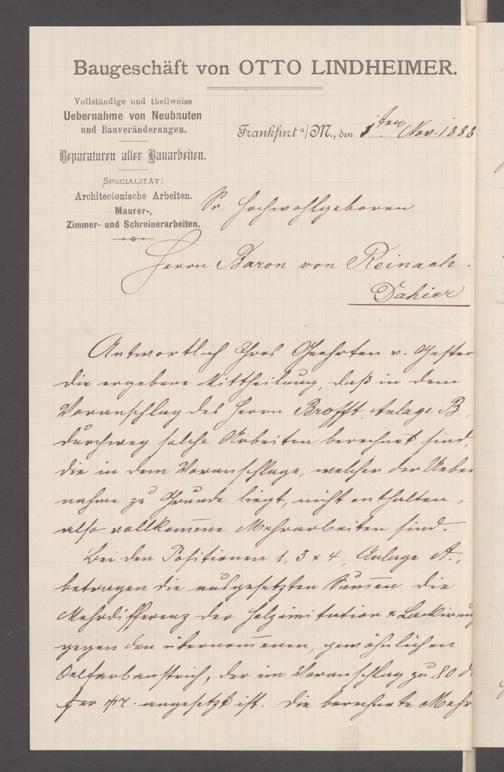 Baugeschäft von OTTO LINDHEIMER.
Vollständige und theilweise
Uebernahme von Neubauten
und Bauveränderungen.
Reparaturen aller Bauarbeiten.
SPECIALITÄT:
Architectonische Arbeiten.
Maurer-,
Zimmer- und Schreinerarbeiten.
Frankfurt a/M., den 1ten Nov. 1888
Sr Hochwohlgeboren
Herrn Baron von Reinach.
Dahier
Antwortlich Ihres Geehrten v. Gester
die ergebene Mittheilung, daß in dem
Voranschlag des Herrn Brofft, Anlage B,
durchweg solche Arbeiten berechnet sind,
die in dem Voranschlage, welcher der Ueber
nahme zu Grunde liegt, nicht enthalten,
also vollkommene Mehrarbeiten sind.
Bei den Positionen 1, 3 & 4, Anlage A,
betragen die ausgesetzten Summen die
Mehrdifferenz der Holzimitation & Lackirung
gegen den übernommenen, gewöhnlichen
Oelfarbanstrich, der im Voranschlag zu 80 d.
per angesetzt ist. Die berechnete Mehr